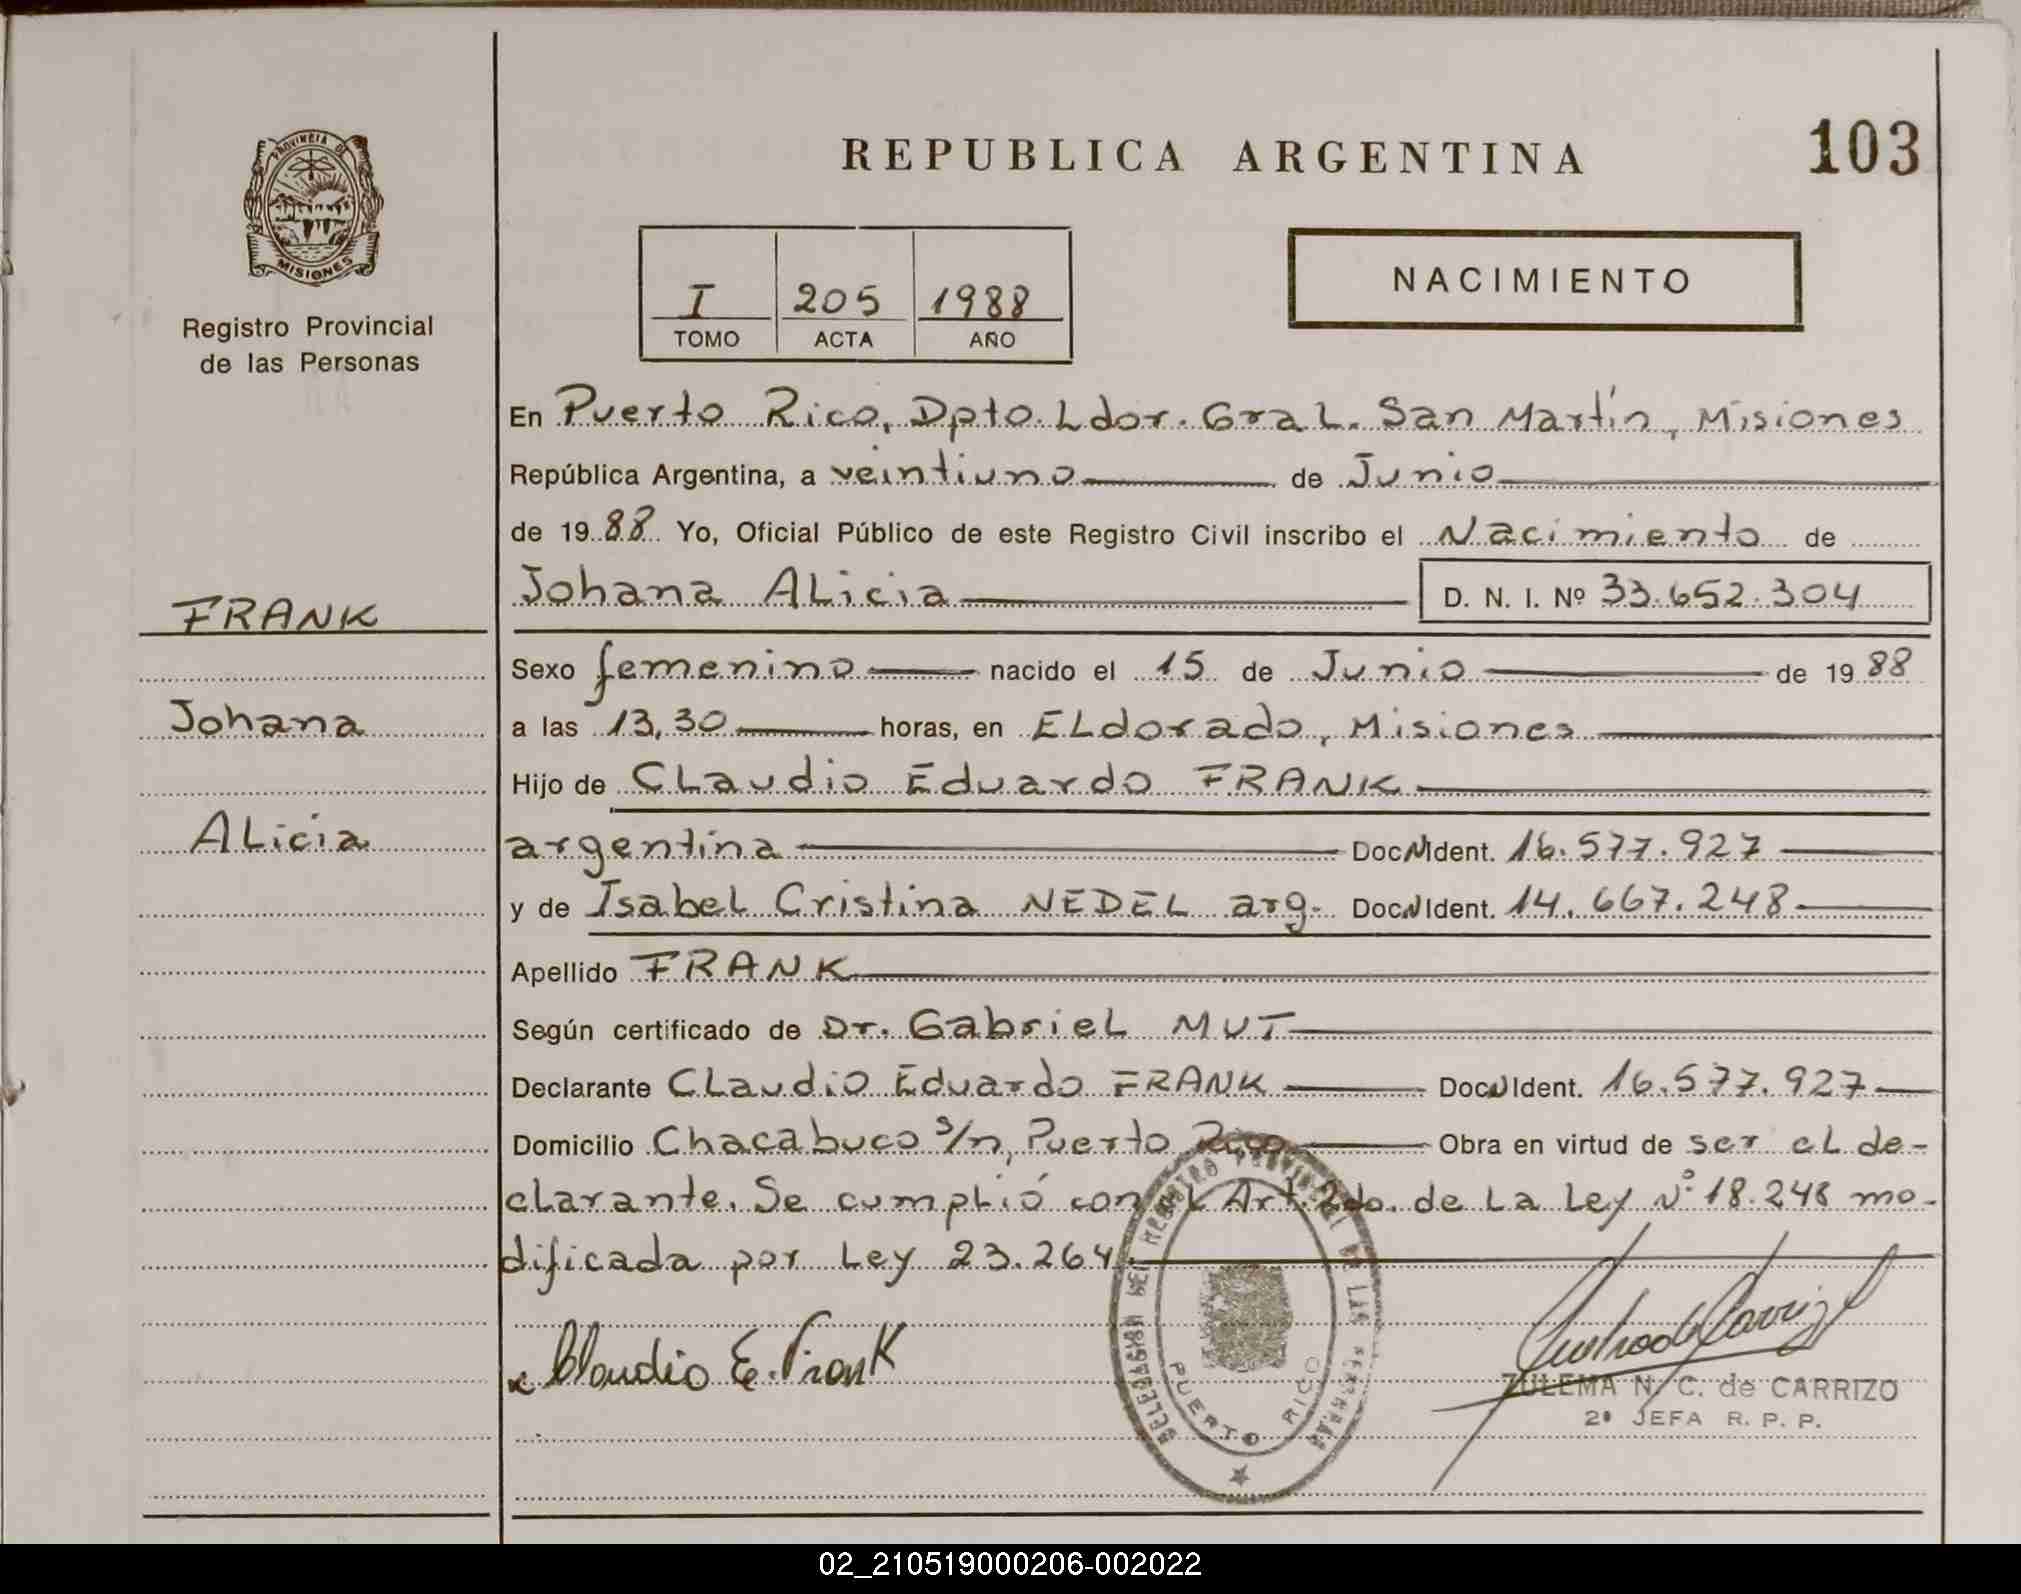 PROVINCIA DE
MISIONES
Registro Provincial
de las Personas
REPUBLICA ARGENTINA 103
I 205 1988
TOMO ACTA AÑO
NACIMIENTO
En Puerto Rico, Dpto. Ldor. Gral. San Martín, Misiones
República Argentina, a veintiuno de Junio
de 1988 Yo, Oficial Público de este Registro Civil inscribo el Nacimiento de
FRANK
Johana Alicia D. N. I. Nº 33.652.304
Sexo femenino nacido el 15 de Junio de 1988
Johana
a las 13,30 horas, en Eldorado, Misiones
Hijo de Claudio Eduardo FRANK
Alicia
argentina Doc. Ident. 16.577.927
y de Isabel Cristina NEDEL arg. Doc. Ident. 14.667.248
Apellido FRANK
Según certificado de Dr. Gabriel MUT
Declarante Claudio Eduardo FRANK Doc. Ident. 16.577.927
Domicilio Chacabuco s/n, Puerto Rico Obra en virtud de ser el de-
clarante. Se cumplió con el Art. 2do. de la Ley Nº 18.248 mo-
dificada por Ley 23.264
Claudio E. Frank
DELEGACION DEL REGISTRO PROVINCIAL DE LAS PERSONAS
PUERTO RICO
ZULEMA N. C. de CARRIZO
2ª JEFA R. P. P.
02_210519000206-002022